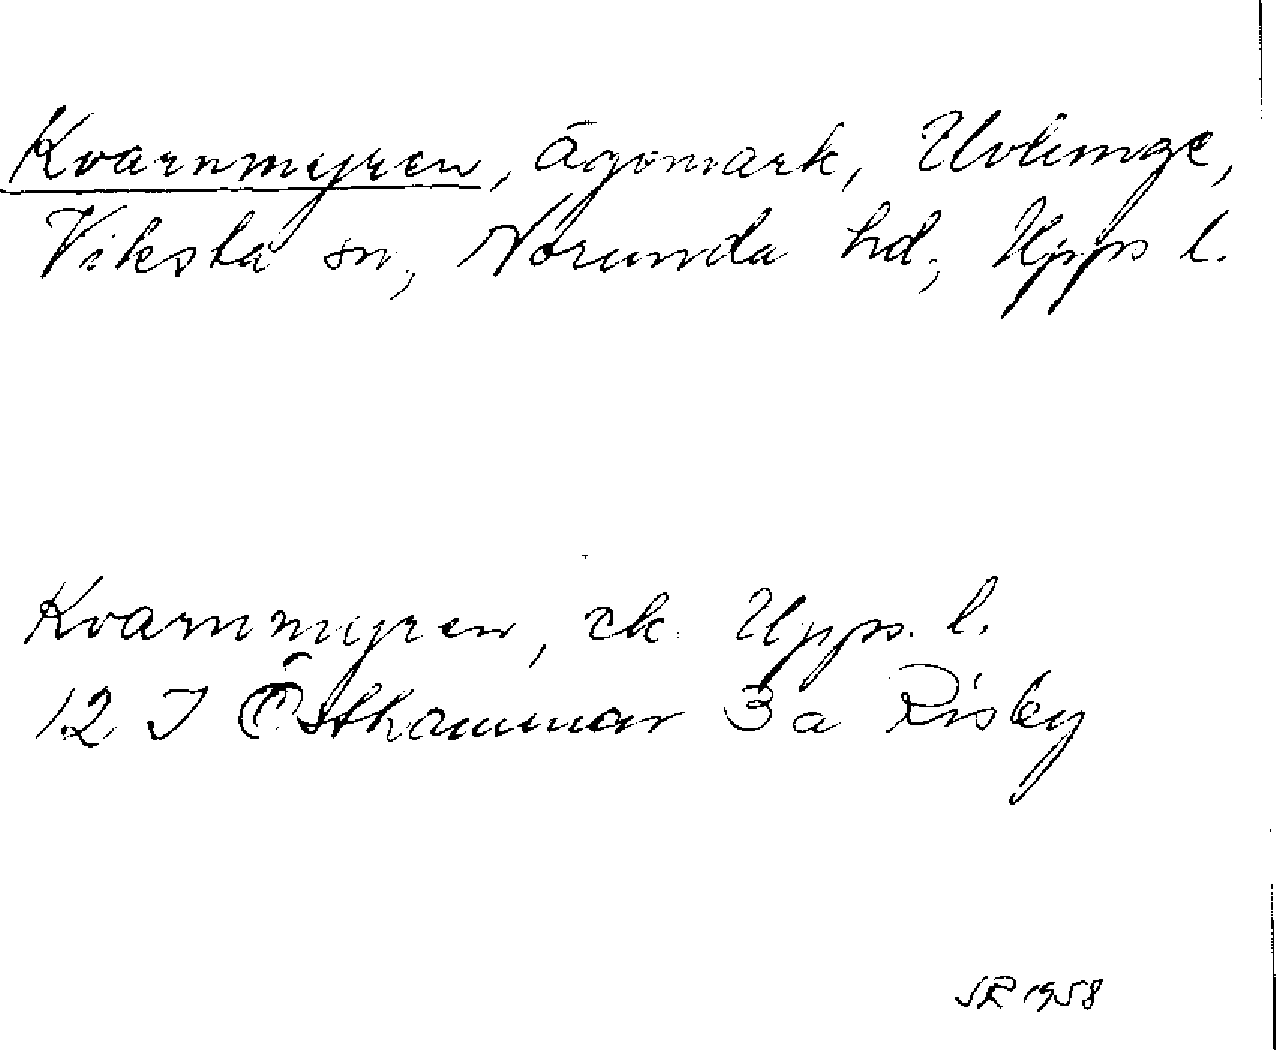 Kvarnmyren, ägomark, Uvlinge,
Viksta sn, Norunda hd, Upps l.
Kvarnmyren, ek. Upps. l.
12 I Östhammar 3 a Risby
SR 1958